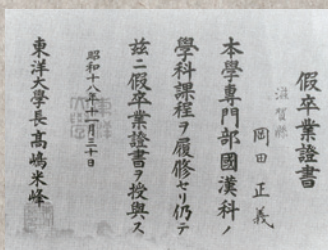 假卒業證書
滋賀縣
岡田正義
本學專門部國漢科ノ
學科課程ヲ履修セリ仍テ
茲ニ假卒業證書ヲ授與ス
昭和十八年十一月三十日
東洋大學長高嶋米峰